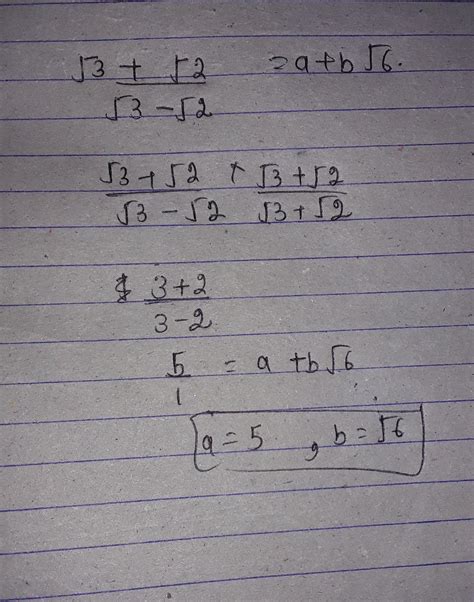 √3 + √2 / √3 - √2 = a + b√6.
√3 + √2 / √3 - √2 × √3 + √2 / √3 + √2
3 + 2 / 3 - 2
5 / 1 = a + b√6
a = 5 , b = √6